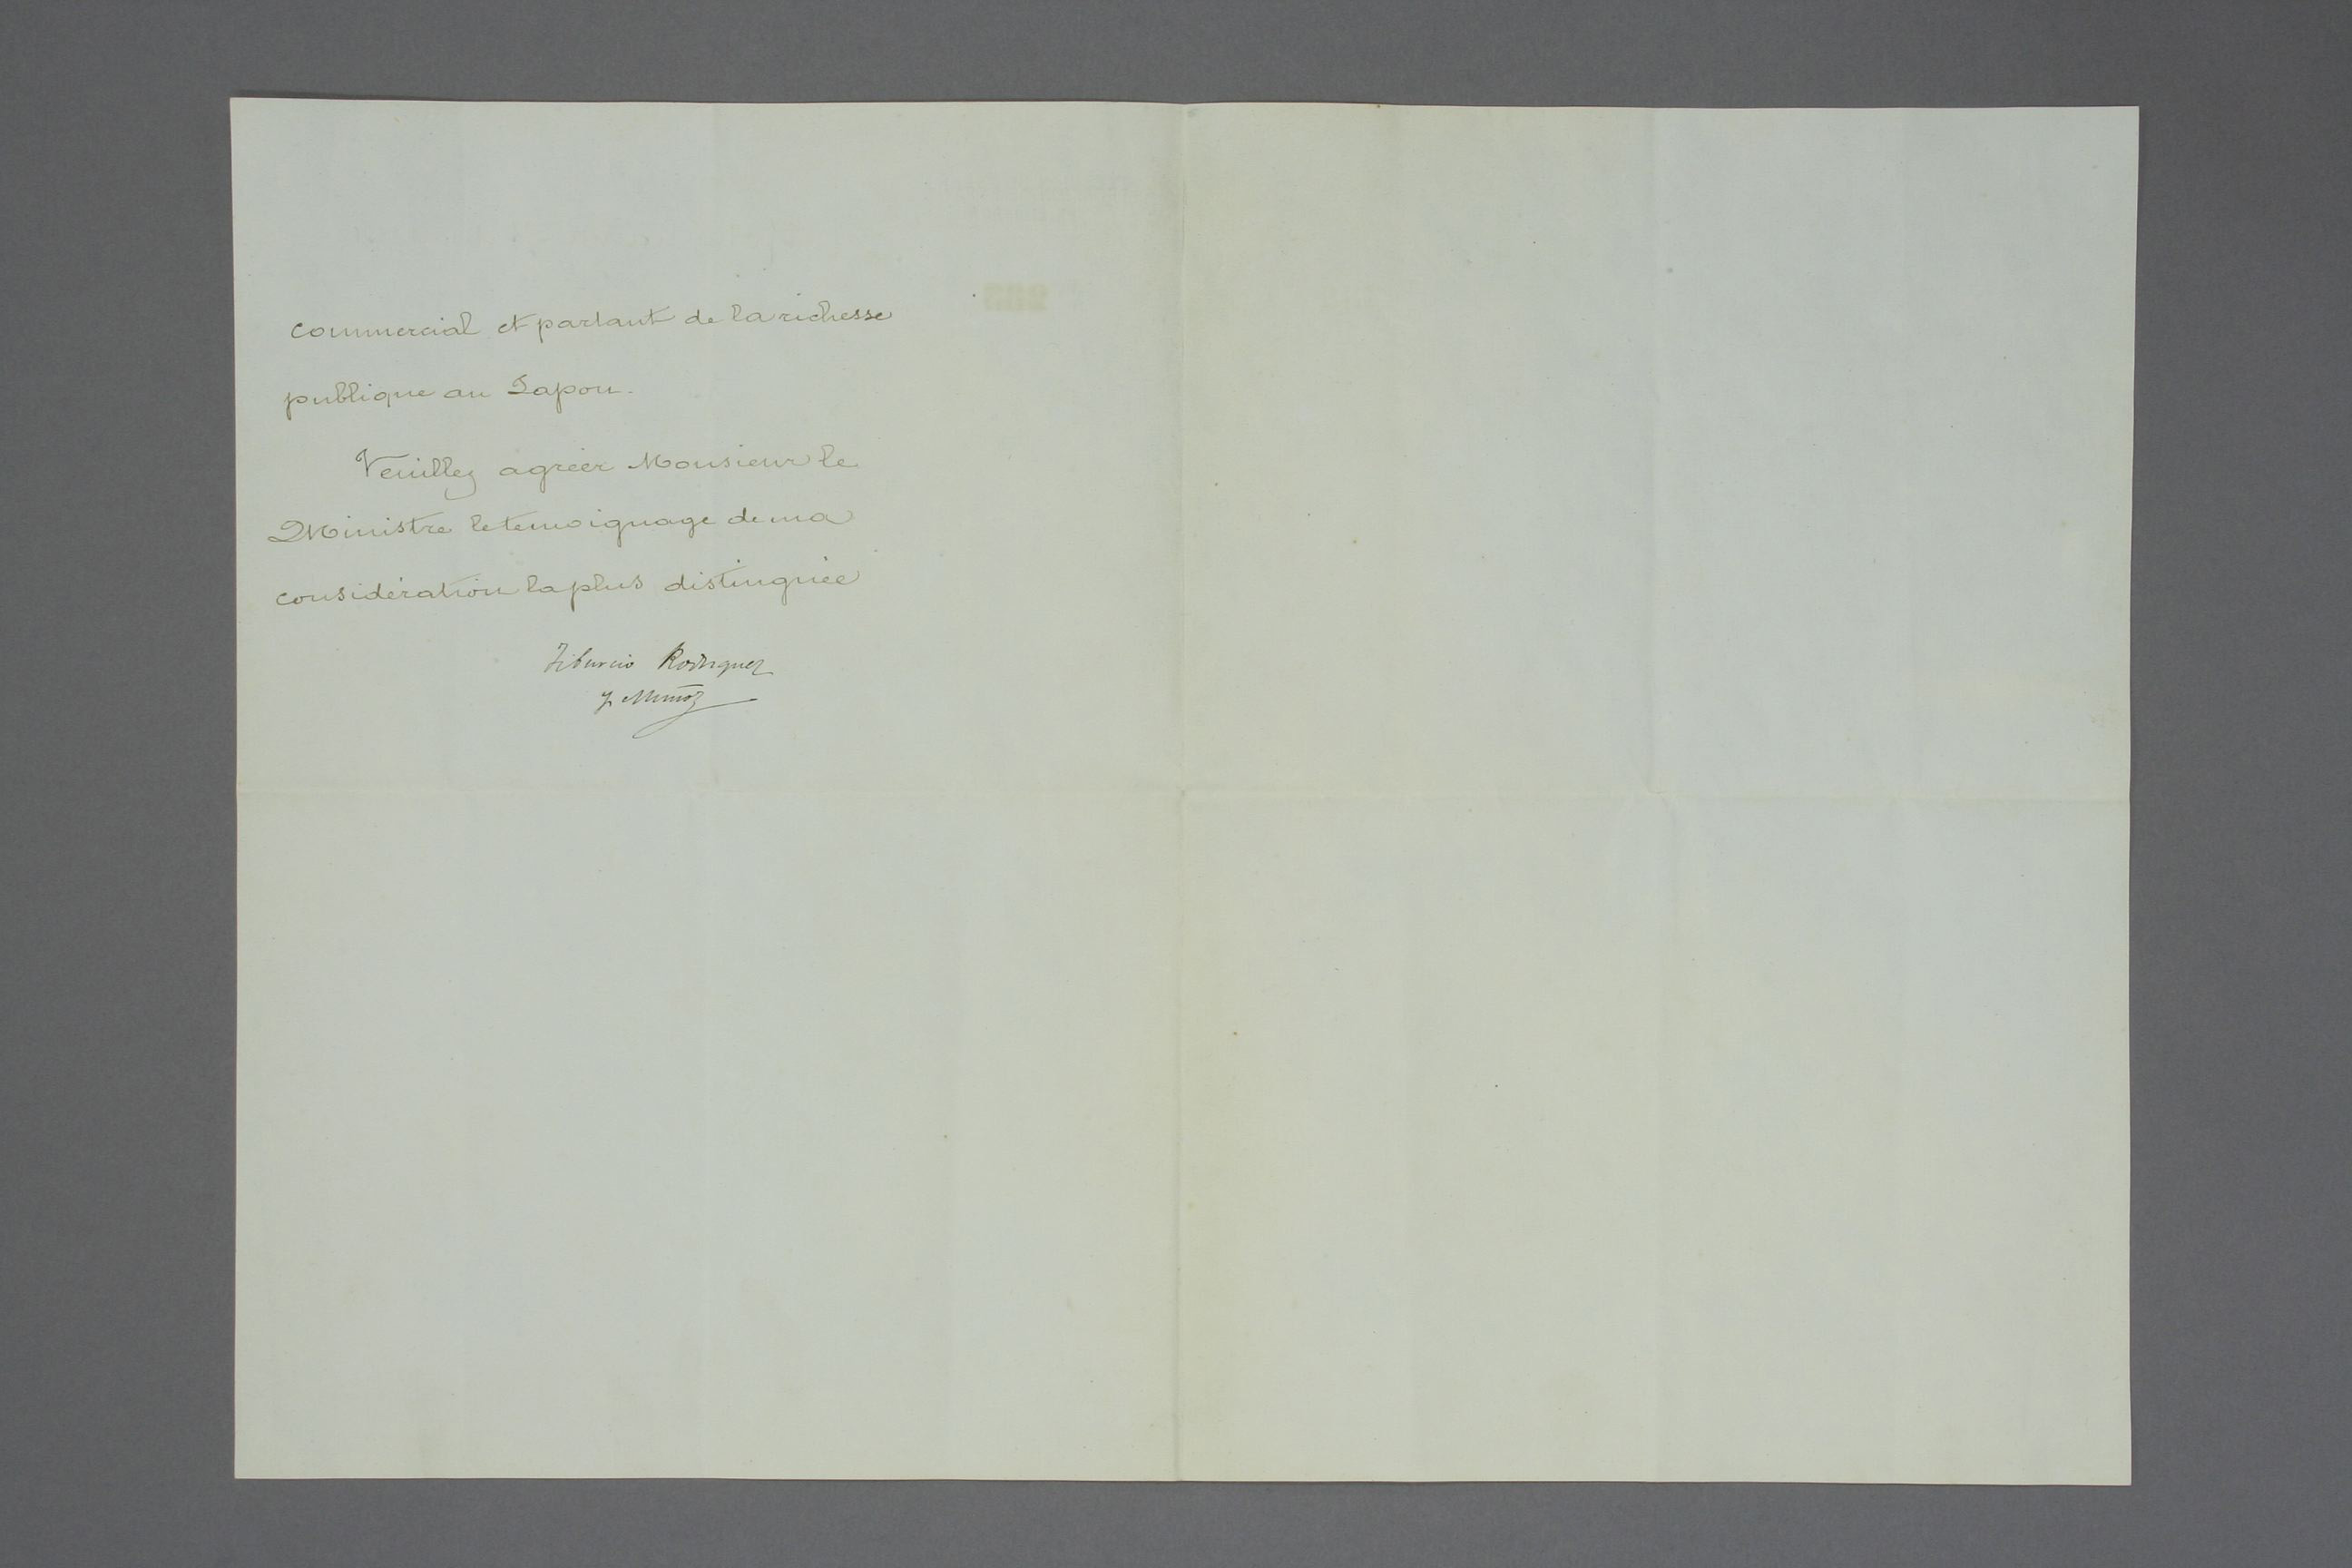 commercial et partant de la richesse
publique au Japon.
Veuillez agréer Monsieur le
Ministre le temoignage de ma
considération la plus distinguée
Tiburcio Rodriguez
y Muñoz